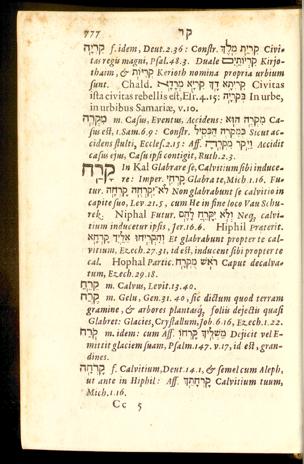 777 קר
קִרְיָה f. idem, Deut. 2.36: Constr. קִרְיַת מֶלֶךְ Civi-
tas regis magni, Psal. 48.3. Duale קִרְיָתַיִם Kirjo-
thaim, & קְרִיּוֹת Kerioth nomina propria urbium
sunt. Chald. קִרְיְתָא דָךְ קִרְיָא מָרָדָא Civitas
ista civitas rebellis est, Esr. 4.15: בְּקִרְיָה In urbe,
in urbibus Samariæ, v. 10.
מִקְרֶה m. Casus, Eventus, Accidens: מִקְרֶה הוּא Ca-
sus est, 1. Sam. 6.9: Constr. כְּמִקְרֵה הַכְּסִיל Sicut ac-
cidens stulti, Eccles. 2.15: Aff. וַיִּקֶר מִקְרֶהָ Accidit
casus ejus, Casu ipsi contigit, Ruth. 2.3.
קָרַח In Kal Glabrare se, Calvitium sibi induce-
re: Imper. קָרְחִי Glabra te, Mich. 1.16. Fu-
tur. לֹא יִקְרְחָה קָרְחָה Non glabrabunt se calvitio in
capite suo, Lev. 21.5, cum He in fine loco Vau Schu-
rek. Niphal Futur. וְלֹא יִקָּרֵחַ לָהֶם Neq, calvi-
tium inducetur ipsis, Jer. 16.6. Hiphil Præterit.
וְהִקְרִיחוּ אֵלַיִךְ קָרְחָא Et glabrabunt propter te cal-
vitium, Ezech. 27.31. id est, inducent sibi propter te
cal. Hophal Partic. רֹאשׁ מֻקְרָח Caput decalva-
tum, Ezech. 29.18.
קֵרֵחַ m. Calvus, Levit. 13.40.
קֶרַח m. Gelu, Gen. 31.40, sic dictum quod terram
gramine, & arbores plantasq, foliis dejectis quasi
Glabret: Glacies, Crystallum, Job. 6.16, Ezech. 1.22.
קֹרַח m. idem: cum Aff. מַשְׁלִיךְ קַרְחוֹ Dejicit vel E-
mittit glaciem suam, Psalm. 147. v. 17, id est, gran-
dines.
קָרְחָה f. Calvitium, Deut. 14.1, & semel cum Aleph,
ut ante in Hiphil: Aff. קָרְחָתֵךְ Calvitium tuum,
Mich. 1.16.
Cc 5